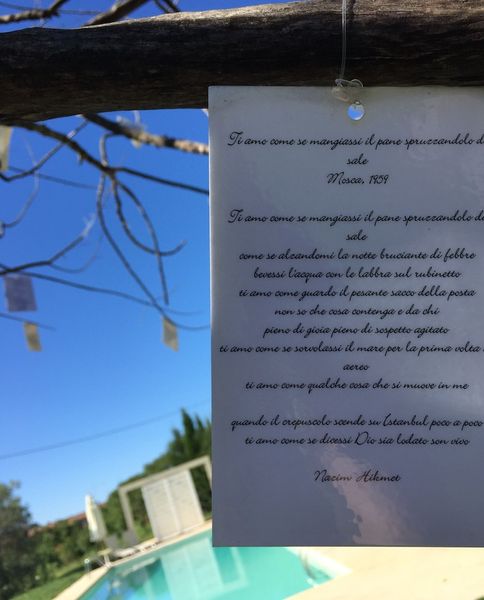 Ti amo come se mangiassi il pane spruzzandolo d
sale
Mosca, 1959
Ti amo come se mangiassi il pane spruzzandolo di
sale
come se alzandomi la notte bruciante di febbre
bevessi l'acqua con le labbra sul rubinetto
ti amo come guardo il pesante sacco della posta
non so che cosa contenga e da chi
pieno di gioia pieno di sospetto agitato
ti amo come se sorvolassi il mare per la prima volta
aereo
ti amo come qualche cosa che si muove in me
quando il crepuscolo scende su Istanbul poco a poco
ti amo come se dicessi Dio sia lodato son vivo
Nazim Hikmet